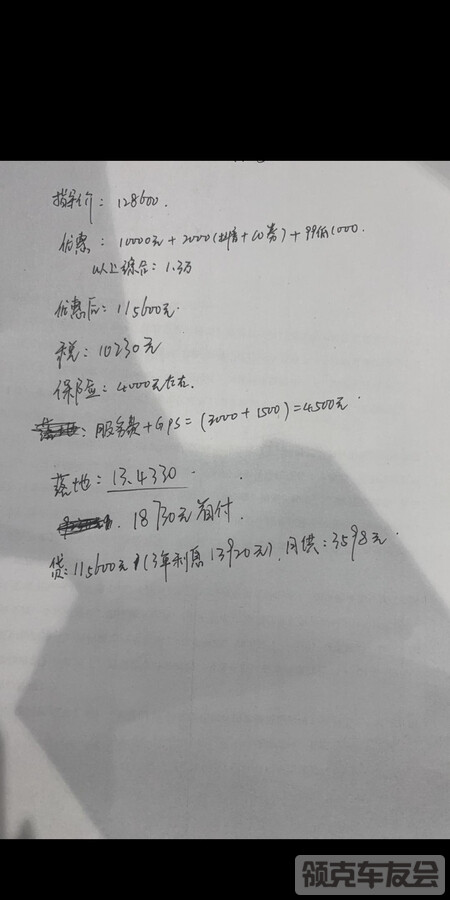 指导价：128600.
优惠：10000元+2000(抖音+CO券)+99抵1000.
以上综合：1.3万
优惠后：115600元.
税：10230元
保险：4000元左右.
：服务费+GPS=(3000+1500)=4500元.
落地：13.4330.
18730元首付.
贷：115600元(3年利息13920元).月供：3598元.
领克车友会